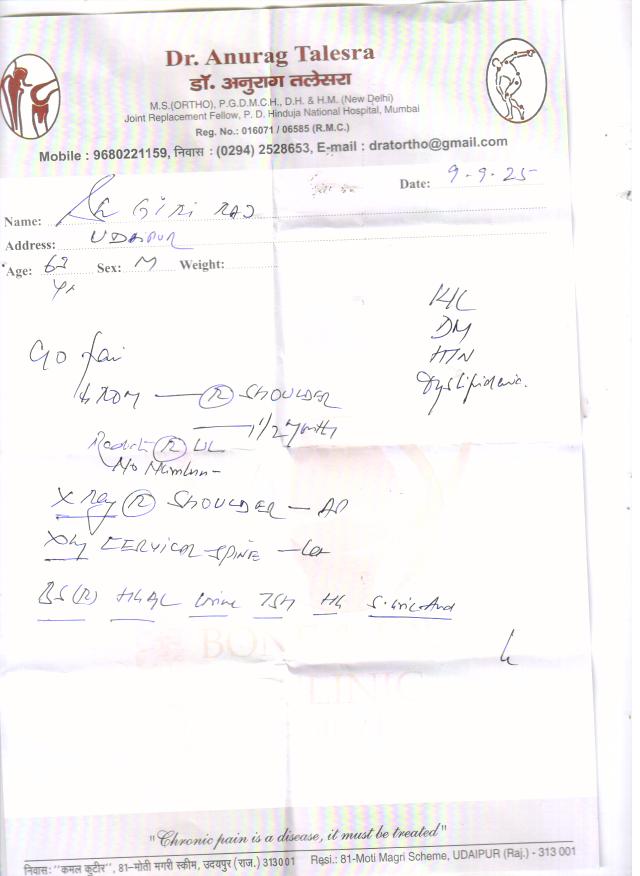 Dr. Anurag Talesra
डॉ. अनुराग तलेसरा
M.S.(ORTHO), P.G.D.M.C.H., D.H. & H.M. (New Delhi)
Joint Replacement Fellow, P. D. Hinduja National Hospital, Mumbai
Reg. No.: 016071 / 06585 (R.M.C.)
Mobile : 9680221159, निवास : (0294) 2528653, E-mail : dratortho@gmail.com
Date: 9-9-25
Name: GIRI RAJ
Address: UDAIPUR
Age: 63 Yr Sex: M Weight:
K/C
DM
HTN
Dyslipidemia.
C/O Pain
ROM — (R) SHOULDER
1/2 month
(R) UL
No Numbness
X Ray (R) SHOULDER — AP
X Ray CERVICAL SPINE — Lat
BS(R) HbA1C Urine TSH Hb S. Uric Acid
BON
LINIC
"Chronic pain is a disease, it must be treated"
निवास: "कमल कुटीर", 81-मोती मगरी स्कीम, उदयपुर (राज.) 313001 Resi.: 81-Moti Magri Scheme, UDAIPUR (Raj.) - 313 001